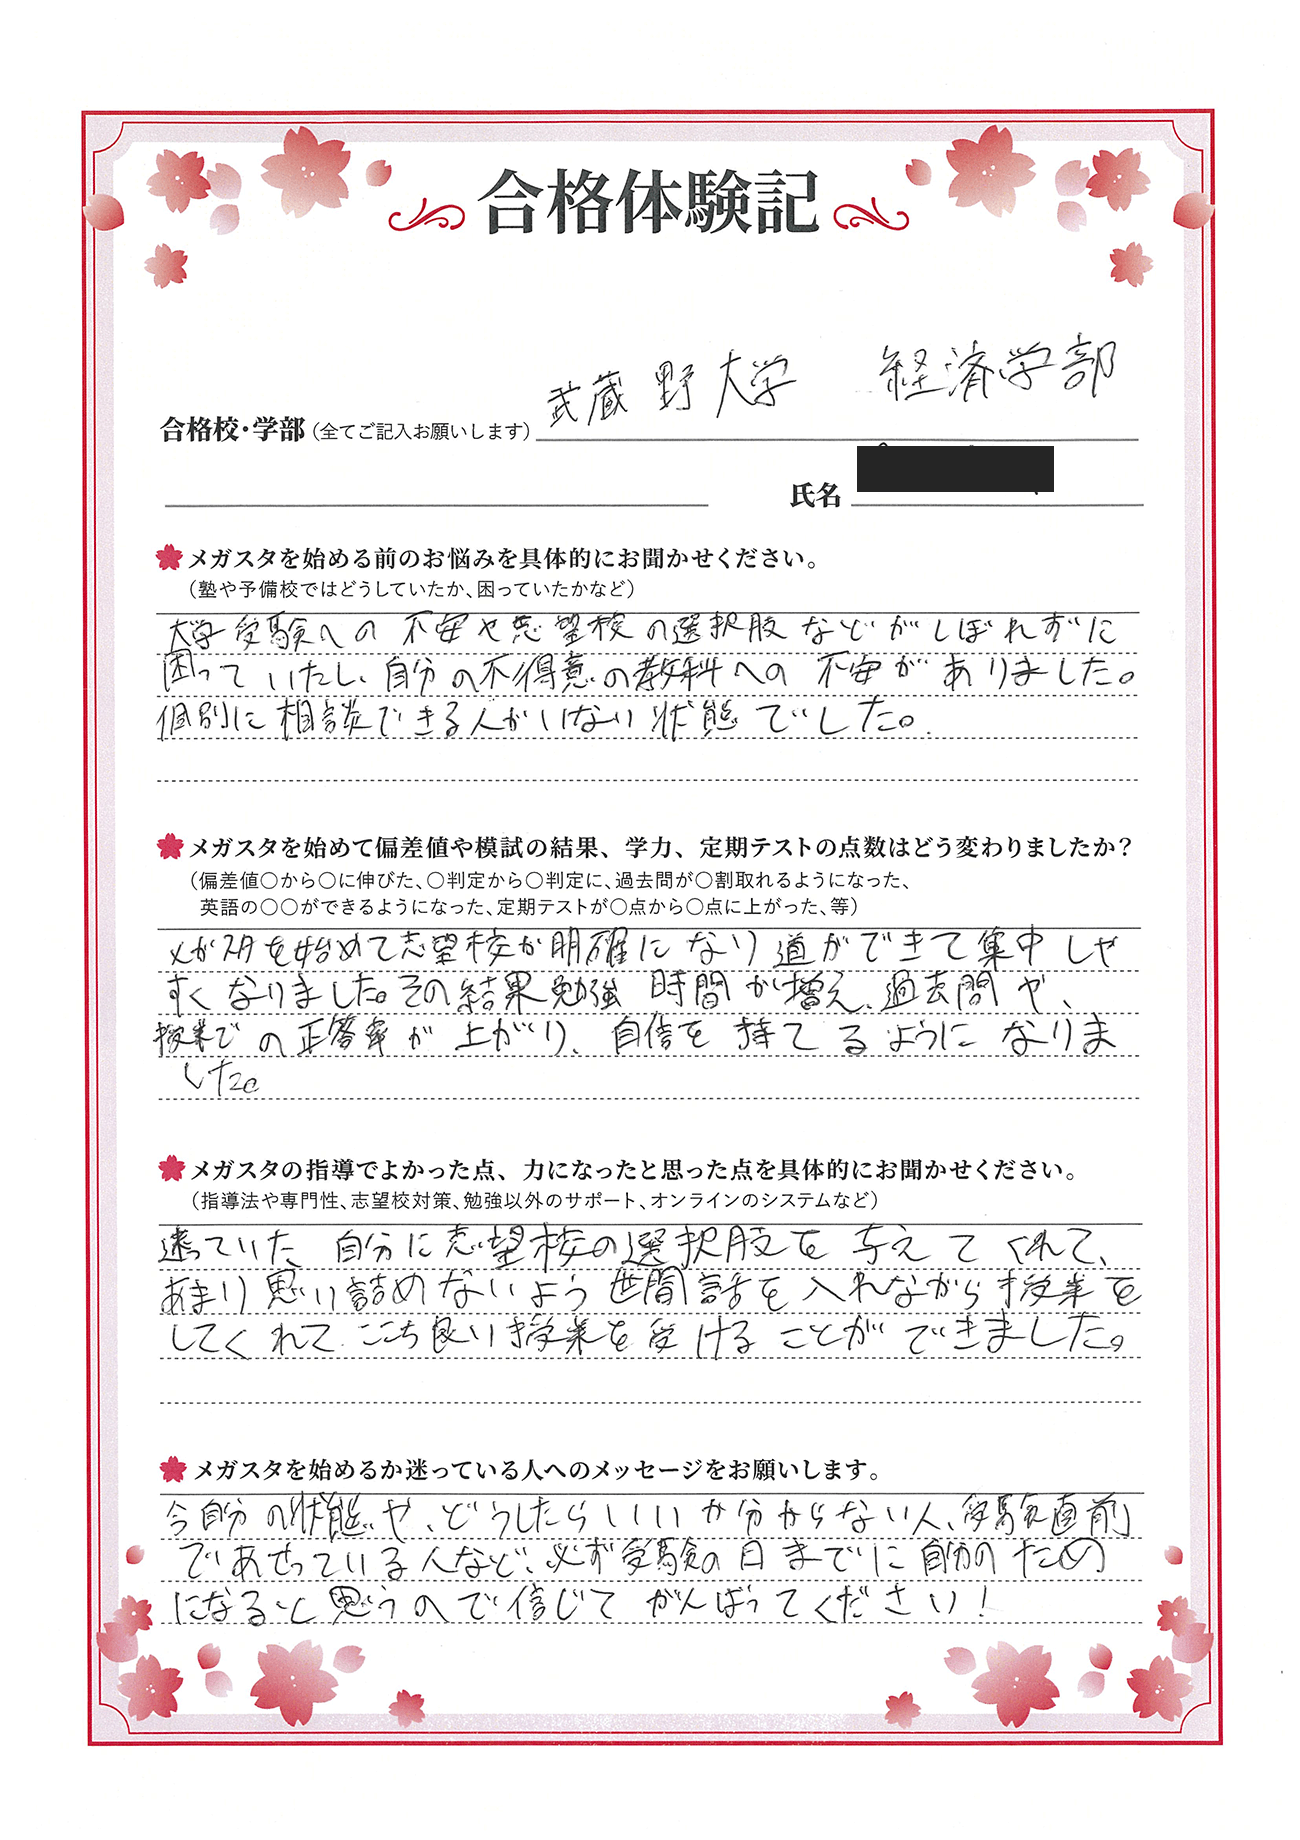 合格体験記
武蔵野大学 経済学部
合格校・学部（全てご記入お願いします）
氏名
メガスタを始める前のお悩みを具体的にお聞かせください。
（塾や予備校ではどうしていたか、困っていたかなど）
大学受験への不安や志望校の選択肢などがしぼれずに
困っていたし、自分の不得意の教科への不安がありました。
個別に相談できる人がいない状態でした。
メガスタを始めて偏差値や模試の結果、学力、定期テストの点数はどう変わりましたか？
（偏差値○から○に伸びた、○判定から○判定に、過去問が○割取れるようになった、
英語の○○ができるようになった、定期テストが○点から○点に上がった、等）
メガスタを始めて志望校が明確になり道ができて集中しや
すくなりました。その結果勉強時間が増え、過去問や、
授業での正答率が上がり、自信を持てるようになりま
した。
メガスタの指導でよかった点、力になったと思った点を具体的にお聞かせください。
（指導法や専門性、志望校対策、勉強以外のサポート、オンラインのシステムなど）
迷っていた、自分に志望校の選択肢を与えてくれて、
あまり思い詰めないよう世間話を入れながら授業を
してくれて、ここち良い授業を受けることができました。
メガスタを始めるか迷っている人へのメッセージをお願いします。
今自分の状態や、どうしたらいいか分からない人、受験直前
であせっている人など、必ず受験の日までに自分のため
になると思うので信じてがんばってください！